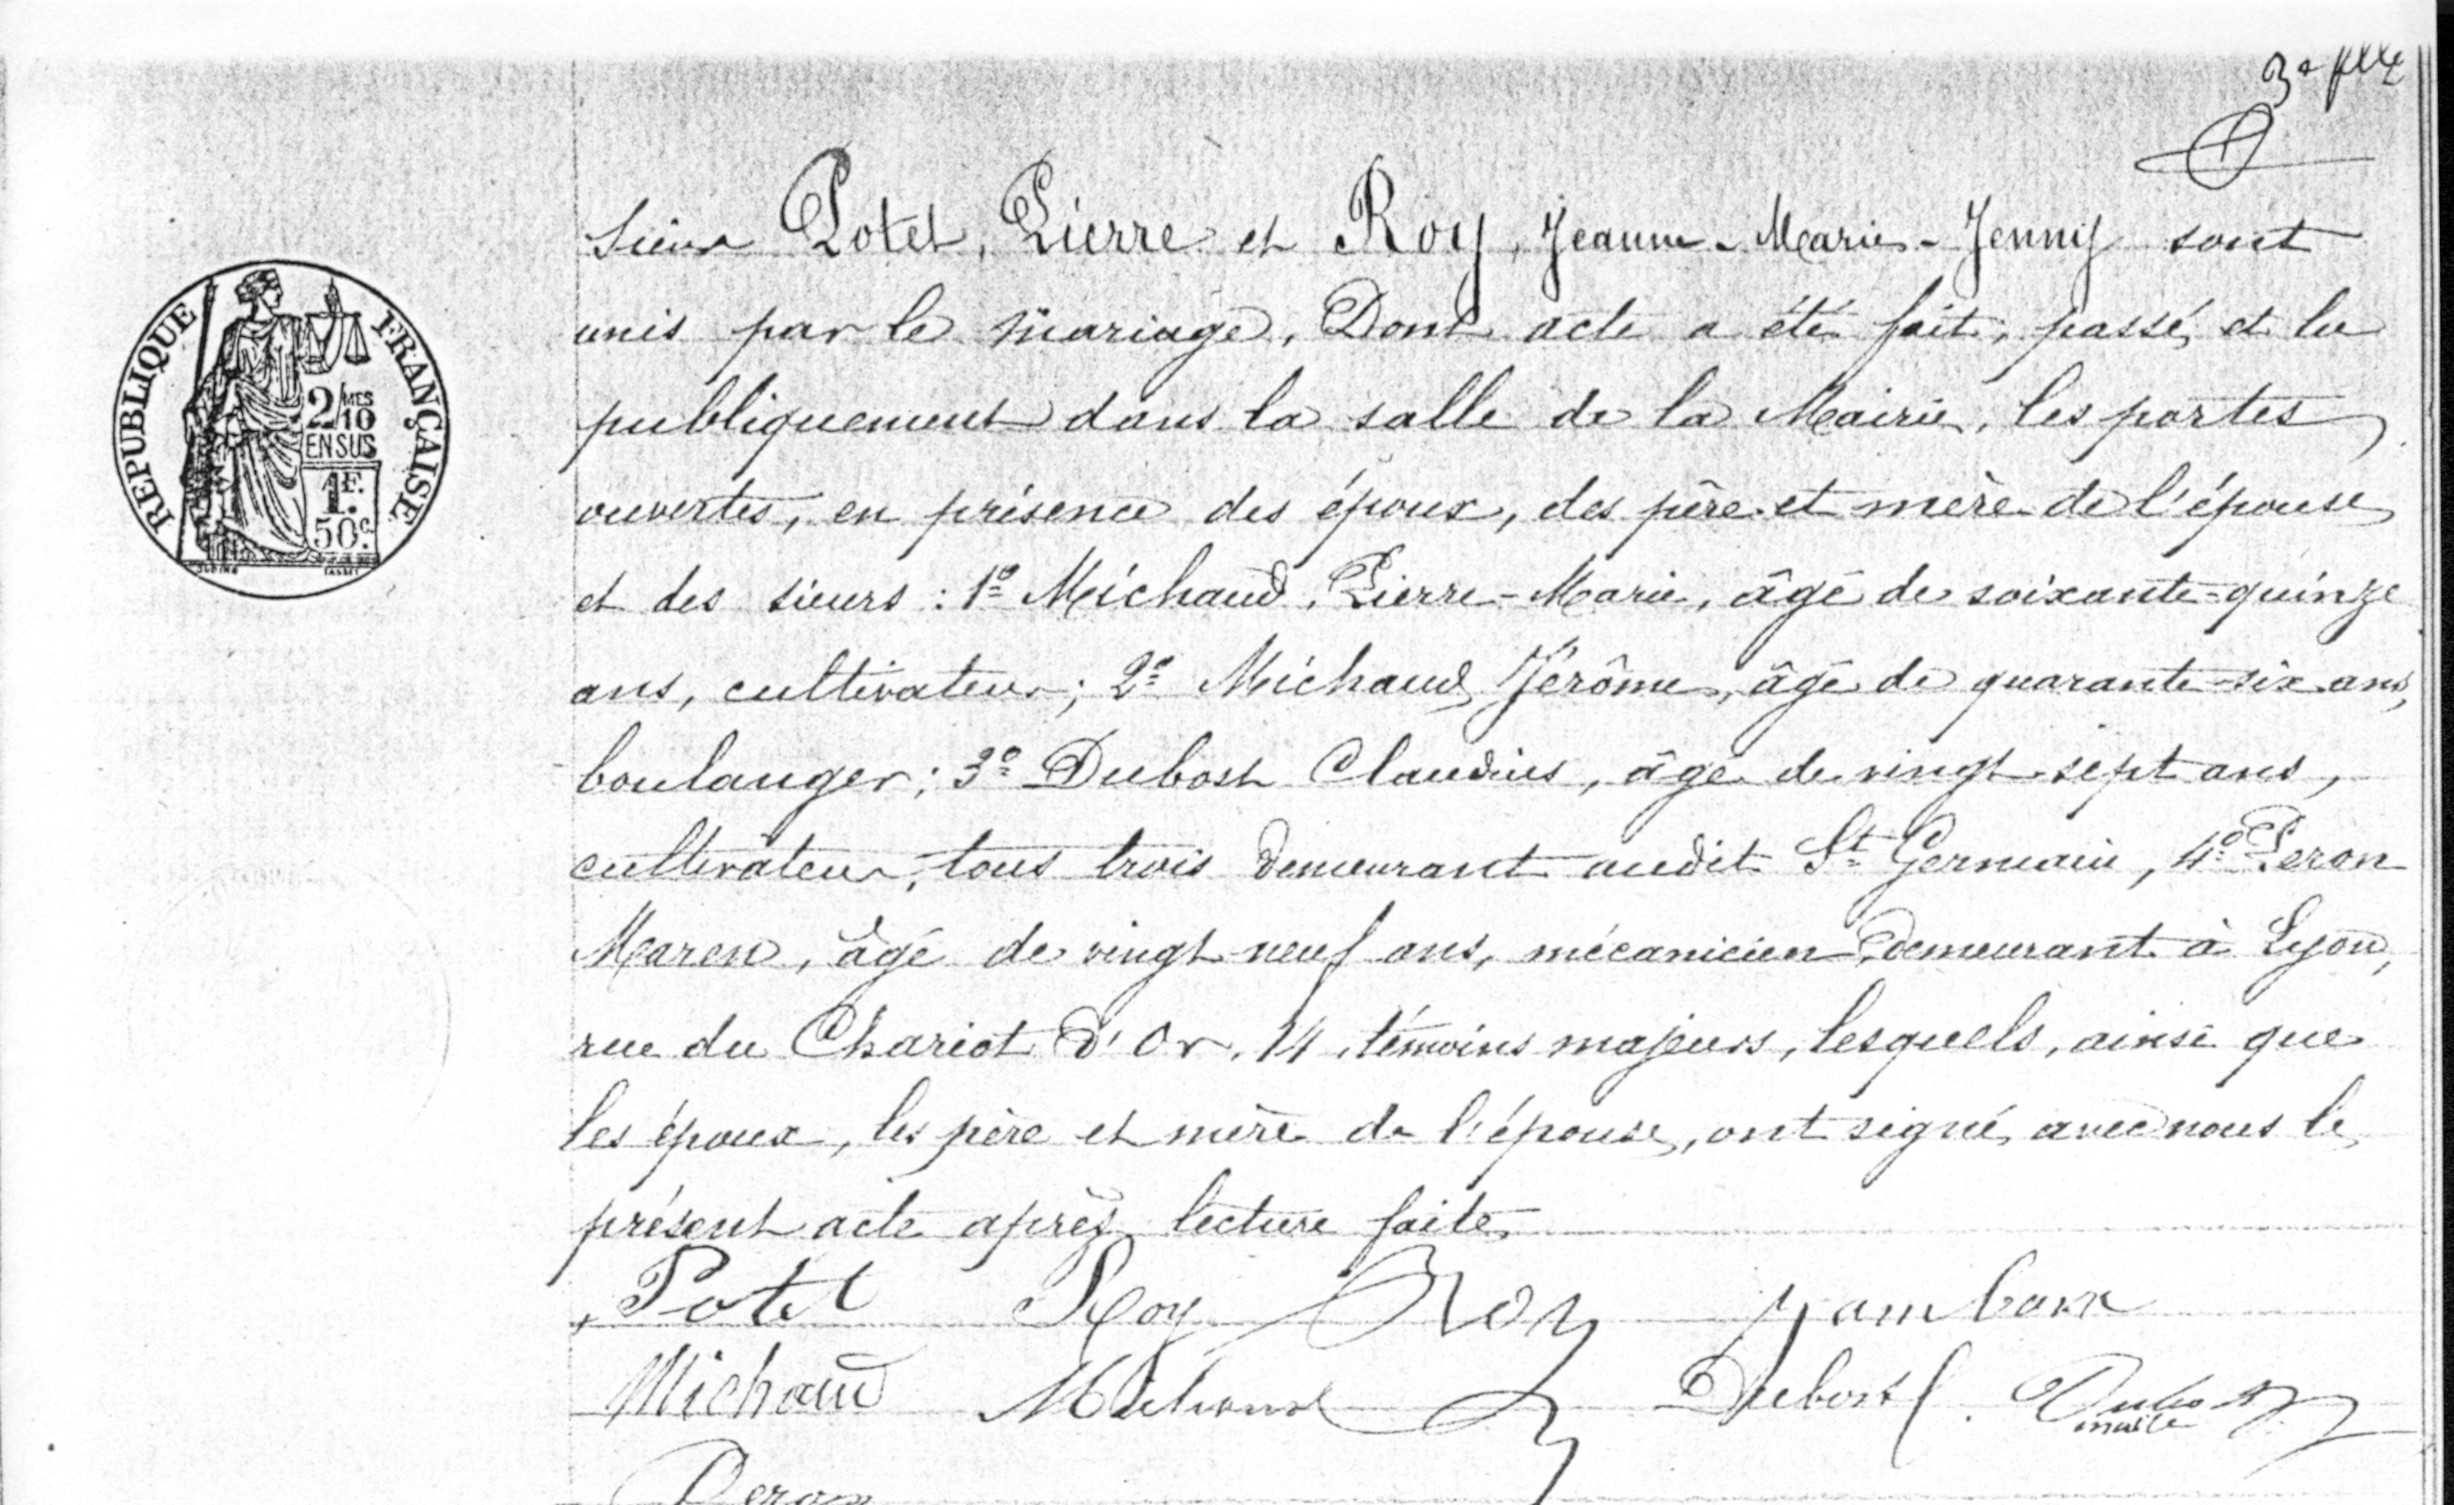 3e flle
Sieur Potet, Pierre et Roy, Jeanne-Marie-Jenny sont
unis par le mariage, Dont acte a été fait, passé, et lu
publiquement dans la salle de la Mairie, les portes
ouvertes, en présence des époux, des père et mère de l'épouse
et des sieurs : 1º Michaud, Pierre-Marie, âgé de soixante-quinze
ans, cultivateur ; 2º Michaud Jérôme, âgé de quarante-six ans,
boulanger ; 3º Dubost Claudius, âgé de vingt-sept ans,
cultivateur, tous trois demeurant audit St Germain, 4º Peron
Maren, âgé de vingt neuf ans, mécanicien demeurant à Lyon,
rue du Chariot d'Or, 14, témoins majeurs, lesquels, ainsi que
les époux, les père et mère de l'épouse, ont signé, avec nous le
présent acte après lecture faite
Potet Roy Roy Jambon
Michaud Michaud Dubost Dubost
maire
Peron
REPUBLIQUE FRANÇAISE
2/10 MES
EN SUS
1F.
50c.